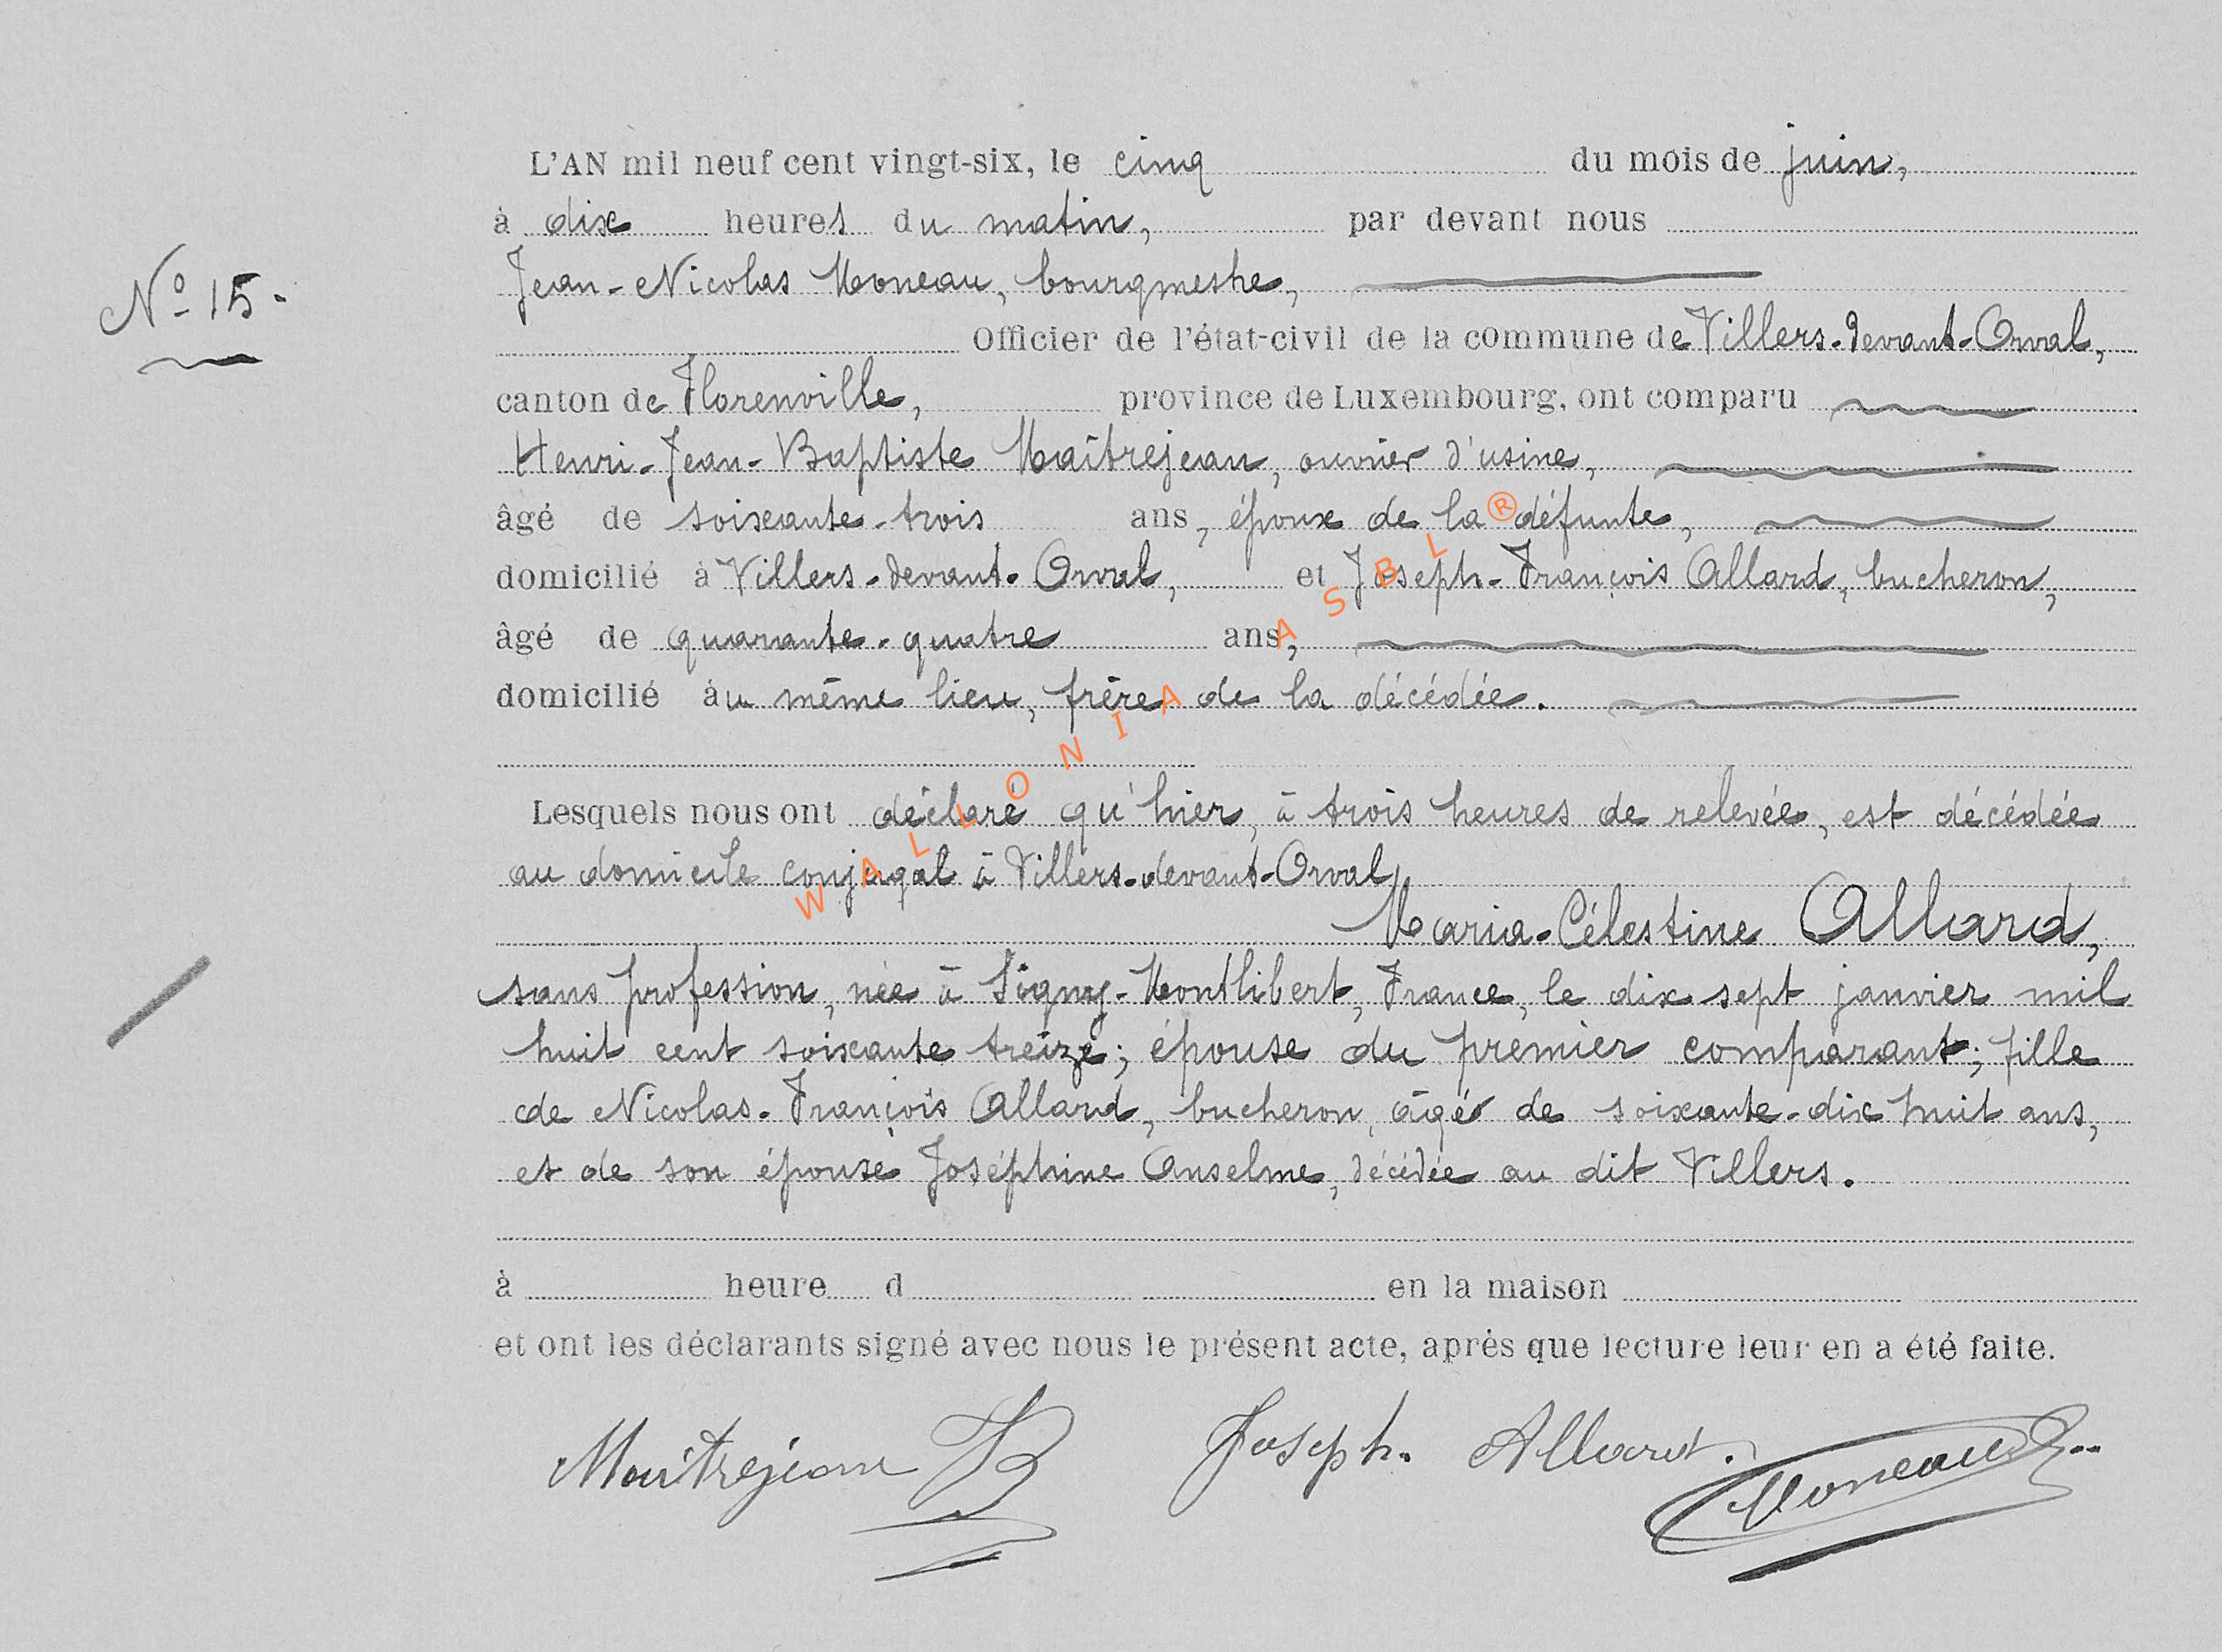 L'AN mil neuf cent vingt-six, le cinq du mois de juin,
à dix heures du matin, par devant nous
Jean-Nicolas Moneau, bourgmestre,
N° 15.
Officier de l'état-civil de la commune de Villers-devant-Orval,
canton de Florenville, province de Luxembourg, ont comparu
Henri-Jean-Baptiste Maîtrejean, ouvrier d'usine,
âgé de soixante-trois ans, époux de la défunte,
domicilié à Villers-devant-Orval, et Joseph-François Allard, bucheron,
âgé de quarante-quatre ans,
domicilié au même lieu, frère de la décédée.
Lesquels nous ont déclaré qu'hier, à trois heures de relevée, est décédée
au domicile conjugal à Villers-devant-Orval,
Maria-Célestine Allard,
sans profession, née à Signy-Montlibert, France, le dix sept janvier mil
huit cent soixante treize; épouse du premier comparant; fille
de Nicolas-François Allard, bucheron, âgé de soixante-dix huit ans,
et de son épouse Joséphine Anselme, décédée au dit Villers.
à heure d en la maison
et ont les déclarants signé avec nous le présent acte, après que lecture leur en a été faite.
Maitrejean Joseph. Allard. Moneau
WALLONIA ASBL ®